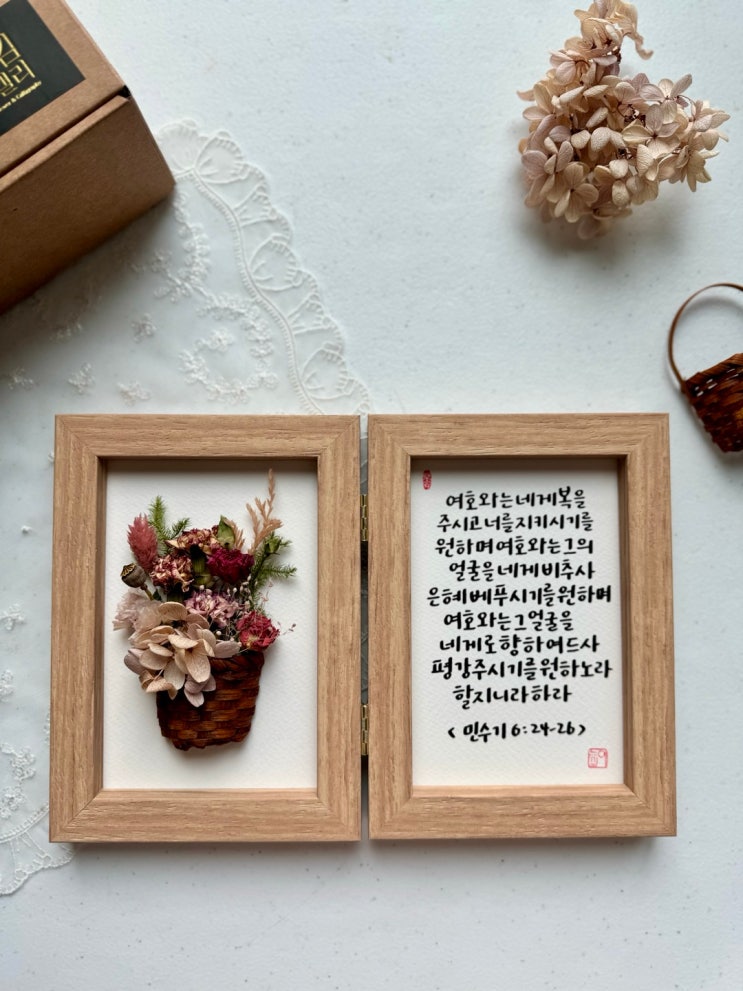 여호와는네게복을
주시고너를지키시기를
원하며여호와는그의
얼굴을네게비추사
은혜베푸시기를원하며
여호와는그얼굴을
네게로향하여드사
평강주시기를원하노라
할지니라하라
(민수기6:24-26)